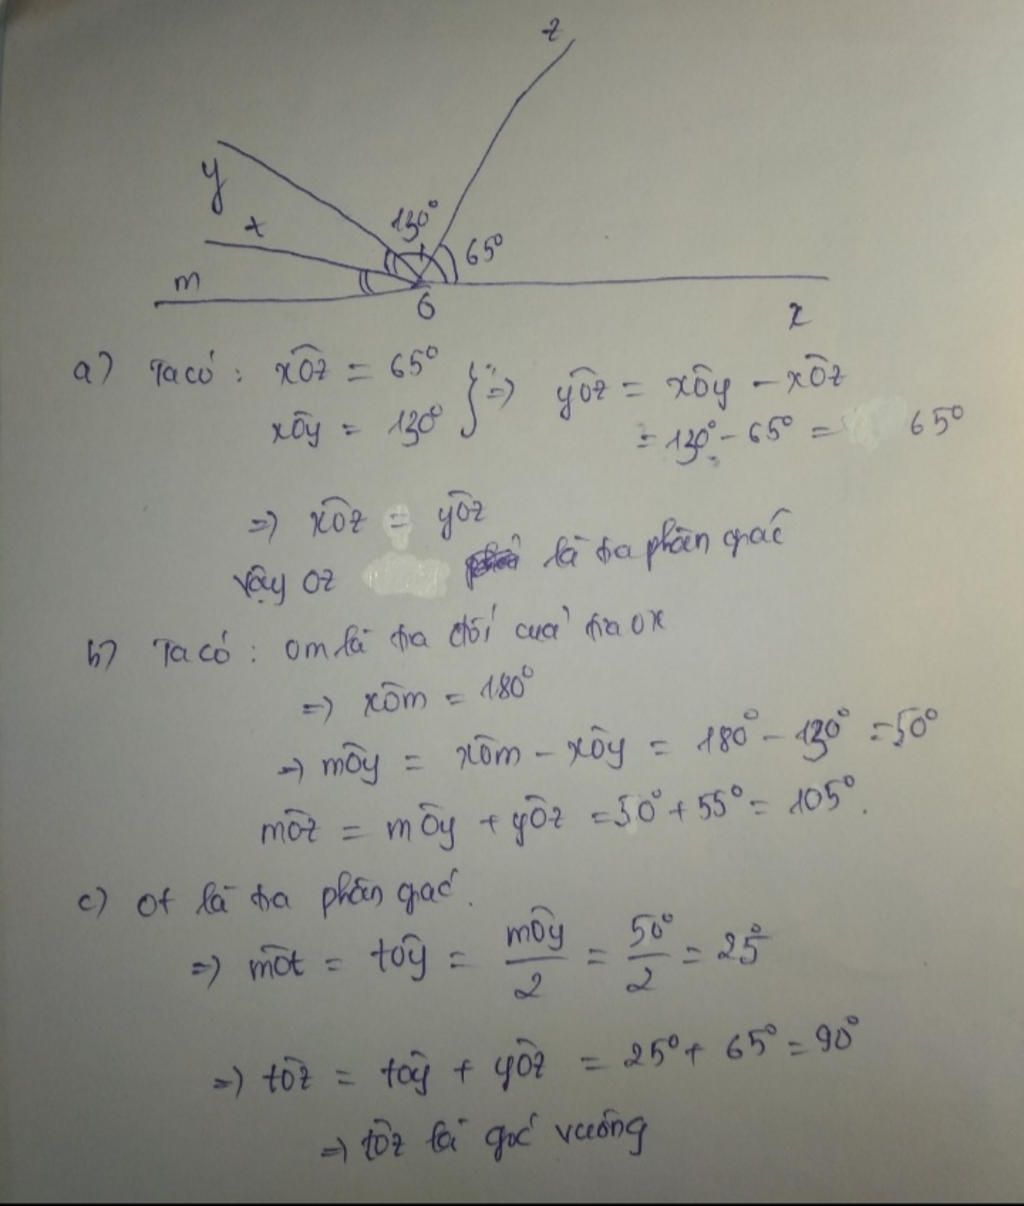 z
y
130°
t
65°
m
O
x
a) Ta có : xÔz = 65°
xÔy = 130° } => yÔz = xÔy - xÔz
= 130° - 65° = 65°
=> xÔz = yÔz
Vậy Oz là tia phân giác
b) Ta có : Om là tia đối của tia Ox
=> xÔm = 180°
=> mÔy = xÔm - xÔy = 180° - 130° = 50°
mÔz = mÔy + yÔz = 50° + 55° = 105°.
c) Ot là tia phân giác.
=> mÔt = tÔy = mÔy/2 = 50°/2 = 25°
=> tÔz = tÔy + yÔz = 25° + 65° = 90°
=> tÔz là góc vuông